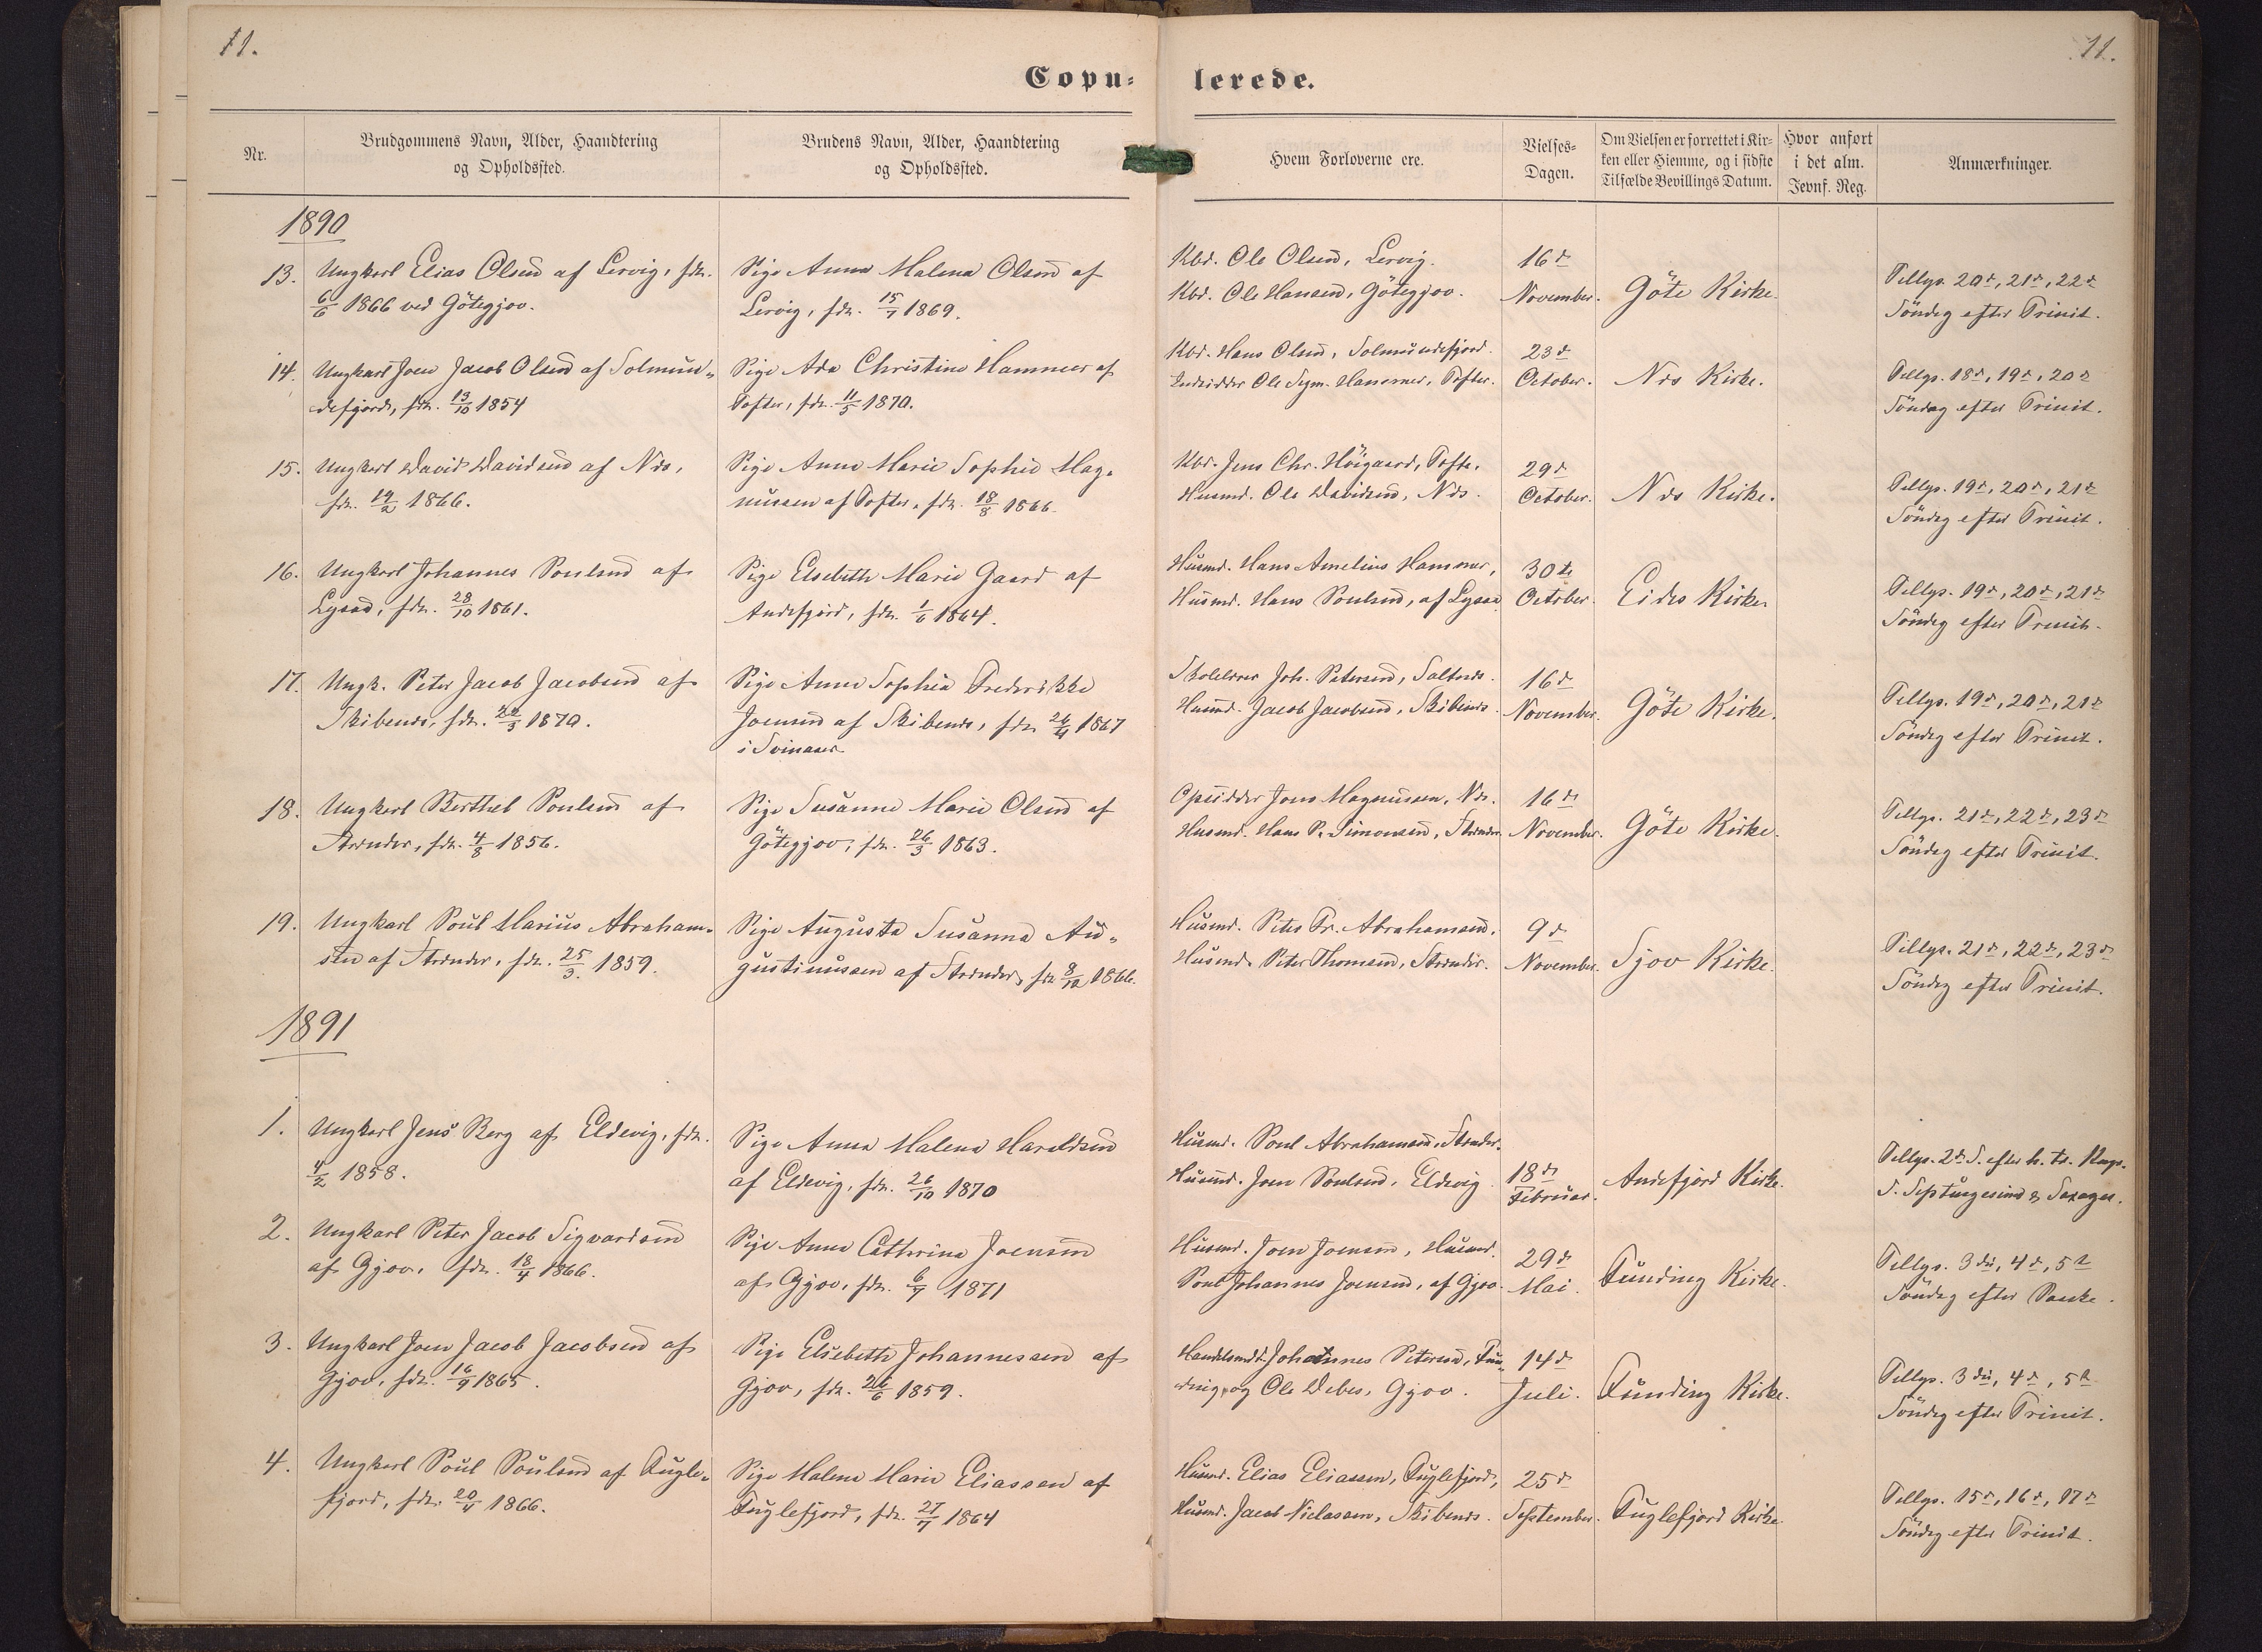 11.
11.
Copu-
lerede.
Nr.
Brudgommens Navn, Alder, Haandtering
og Opholdssted.
Brudens Navn, Alder, Haandtering
og Opholdssted.
Hvem Forloverne ere.
Vielses-
Dagen.
Om Vielsen er forrettet i Kir-
ken eller Hjemme, og i sidste
Tilfælde Bevillings Datum.
Hvor anført
i det alm.
Jevnf. Reg.
Anmærkninger.
1890
13. Ungkarl Elias Olsen af Lervig, fdt.
6/6 1866 ved Götegjov.
Pige Anna Malena Olsen af
Lervig, fdt. 15/7 1869.
Kbd. Ole Olsen, Lervig.
Kbd. Ole Hansen, Götegjov.
16d
November.
Göte Kirke.
Tillyst 20d, 21d, 22d
Söndag efter Trinit.
14. Ungkarl Joen Jacob Olsen af Solmun-
defjord, fdt. 13/10 1854
Pige Ada Christine Hammer af
Tofter, fdt. 11/5 1870.
Kbd. Hans Olsen, Solmundefjord.
Hammer, Tofter.
23d
October.
Nes Kirke.
Tillyst 18d, 19d, 20d
Söndag efter Trinit.
15. Ungkarl David Davidsen af Nes,
fdt. 19/2 1866.
Pige Anne Marie Sophie Mag-
nussen af Tofter, fdt. 18/8 1866.
Kbd. Jens Chr. Höigaard, Tofte.
Husmd. Ole Davidsen, Nes.
29d
October.
Nes Kirke.
Tillyst 19d, 20d, 21d
Söndag efter Trinit.
16. Ungkarl Johannes Poulsen af
fdt. 28/10 1861.
Pige Elsebeth Marie Gaard af
Andefjord, fdt. 1/6 1864.
Husmd. Hans Amelius Hammer,
Husmd. Hans Poulsen, af
30te
October.
Eides Kirke
Tillyst 19d, 20d, 21d
Söndag efter Trinit.
17. Ungk. Peter Jacob Jacobsen af
Skibenes, fdt. 1870.
Pige Anne Sophie Frederikke
Joensen af Skibenes, fdt. 26/4 1867
i Svinaaer
Skolelærer Joh. Petersen, Saltnes.
Husmd. Jacob Jacobsen, Skibenes.
16d
November.
Göte Kirke.
Tillyst 19d, 20d, 21d
Söndag efter Trinit.
18. Ungkarl Berthel Poulsen af
Strender, fdt. 4/8 1856.
Pige Susanne Marie Olsen af
Götegjov, fdt. 26/3 1863.
Opsidder Jens Magnussen, Nes.
Husmd. Hans P. Simonsen, Strender.
16d
November.
Göte Kirke.
Tillyst 21d, 22d, 23d
Söndag efter Trinit.
19. Ungkarl Poul Marius Abraham-
sen af Strender, fdt. 25/3 1859.
Pige Augusta Susanna Au-
gustinussen af Strender, fdt 8/12 1866.
Husmd. Peter Fr. Abrahamsen.
Husmd. Peter Thomsen, Strender.
9d
November.
Sjov Kirke.
Tillyst 21d, 22d, 23d
Söndag efter Trinit.
1891
1. Ungkarl Jens Berg af Eldevig, fdt.
4/2 1858.
Pige Anna Malena Haraldsen
af Eldevig, fdt. 26/10 1870
Husmd. Poul Abrahamsen, Strender.
Husmd. Joen Poulsen, Eldevig
18d
Februar.
Andefjord Kirke.
Tillyst 2d S. efter h. tr. Kong.
S. Septuagesima & Sexages.
2. Ungkarl Peter Jacob Sigvardsen
af Gjov, fdt. 18/4 1866.
Pige Anna Cathrina Joensen
af Gjov, fdt. 6/7 1871
Husmd. Joen Joensen, Husmd.
Poul Johannes Joensen, af Gjov.
29d
Mai.
Funding Kirke.
Tillyst 3die, 4d, 5te
Söndag efter Paaske.
3. Ungkarl Joen Jacob Jacobsen af
Gjov, fdt. 16/9 1865.
Pige Elsebeth Johannessen af
Gjov, fdt. 26/6 1859.
Handelsmd. Johannes Petersen, Fun-
ding, og Ole Debes, Gjov.
14d
Juli.
Funding Kirke.
Tillyst 3die, 4d, 5te
Söndag efter Trinit.
4. Ungkarl Poul Poulsen af Fugle-
fjord, fdt. 20/4 1866.
Pige Malena Marie Eliassen af
Fuglefjord, fdt. 27/7 1864
Husmd. Elias Eliassen, Fuglefjord,
Husmd. Jacob Niclassen, Skibenes.
25d
September.
Fuglefjord Kirke.
Tillyst 15d, 16d, 17d
Söndag efter Trinit.